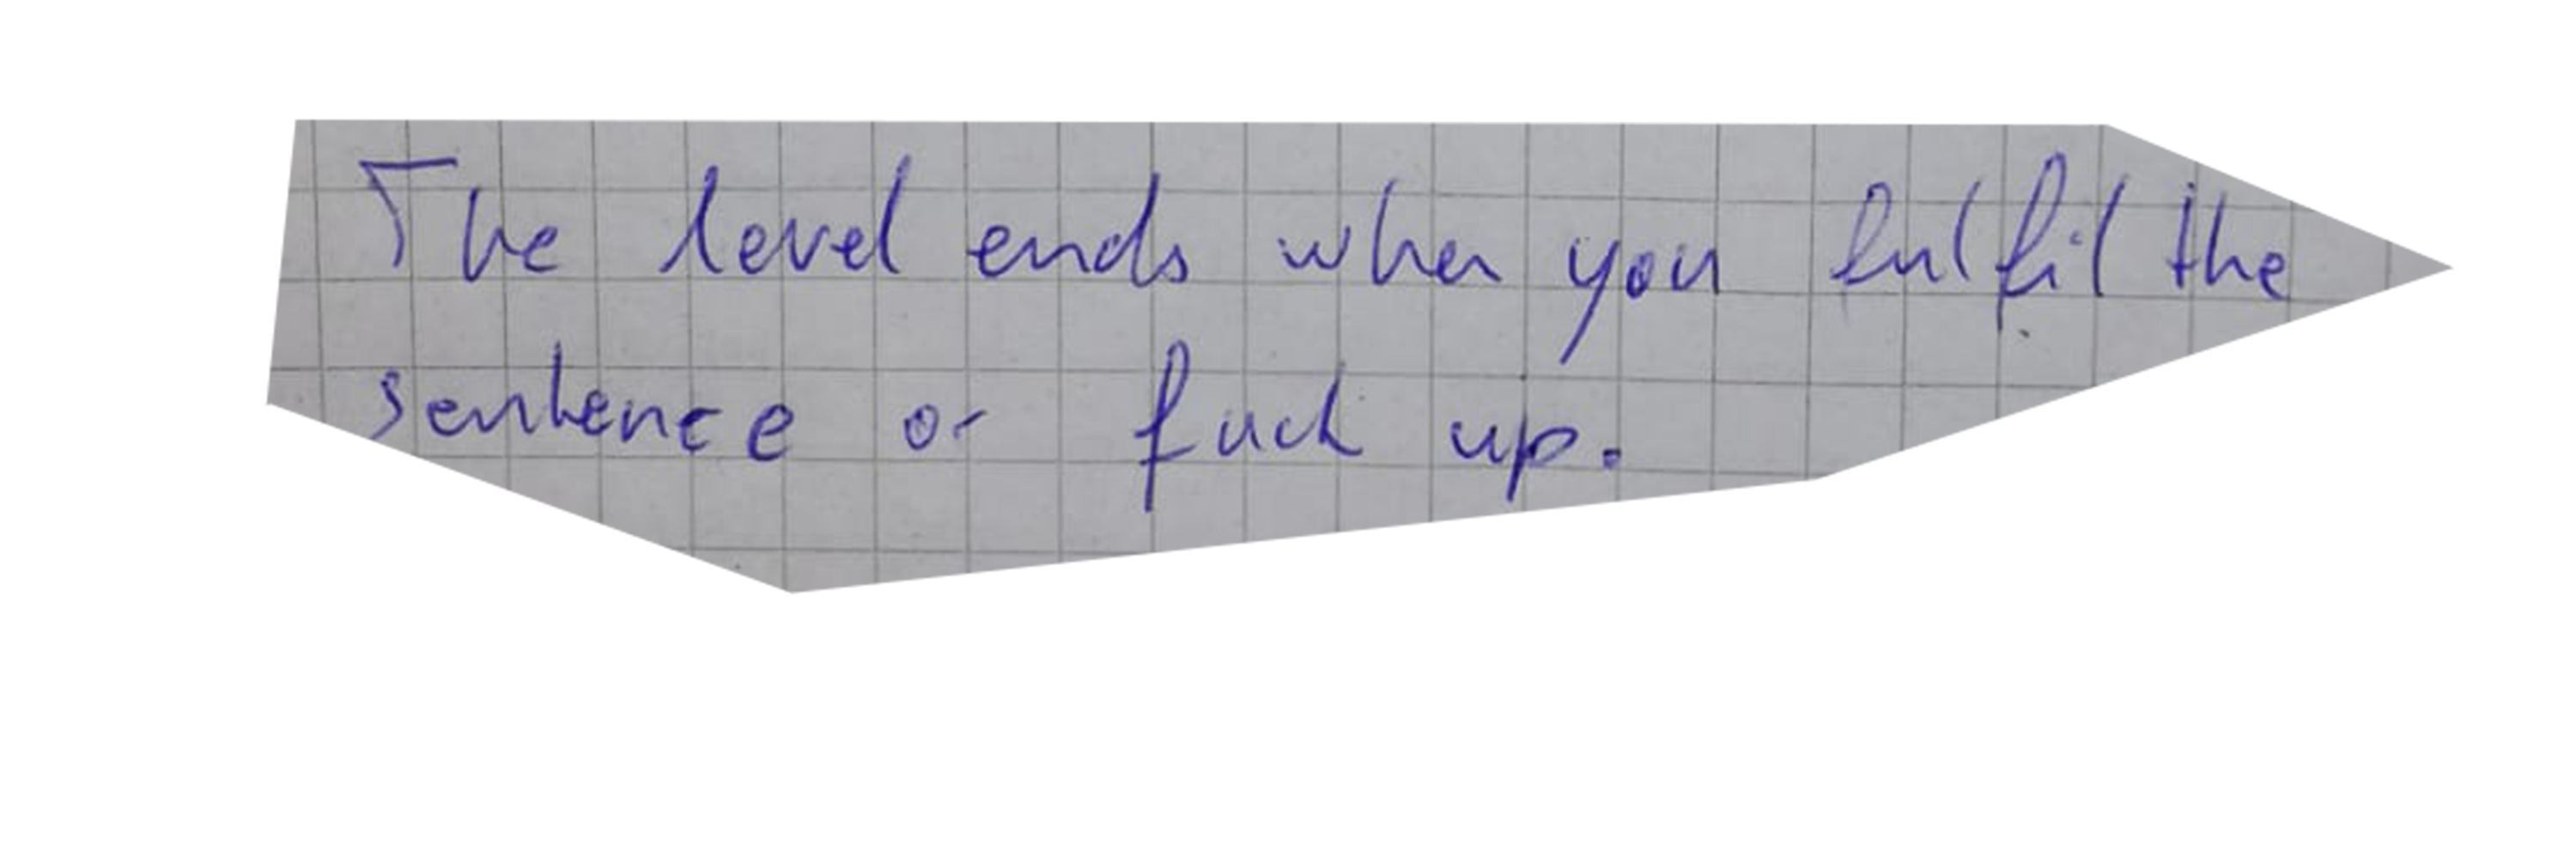 The level ends when you fulfil the
sentence or fuck up.